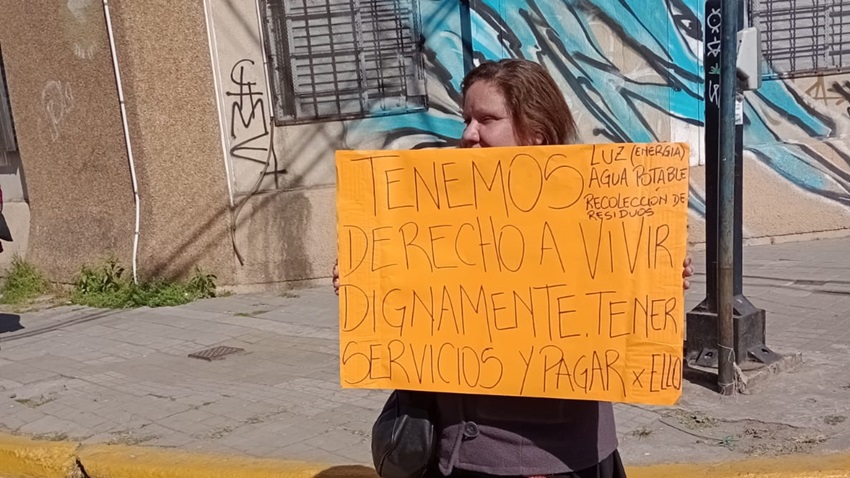 TENEMOS
LUZ (ENERGIA)
AGUA POTABLE
RECOLECCIÓN DE
RESIDUOS
DERECHO A VIVIR
DIGNAMENTE. TENER
SERVICIOS Y PAGAR x ELLO